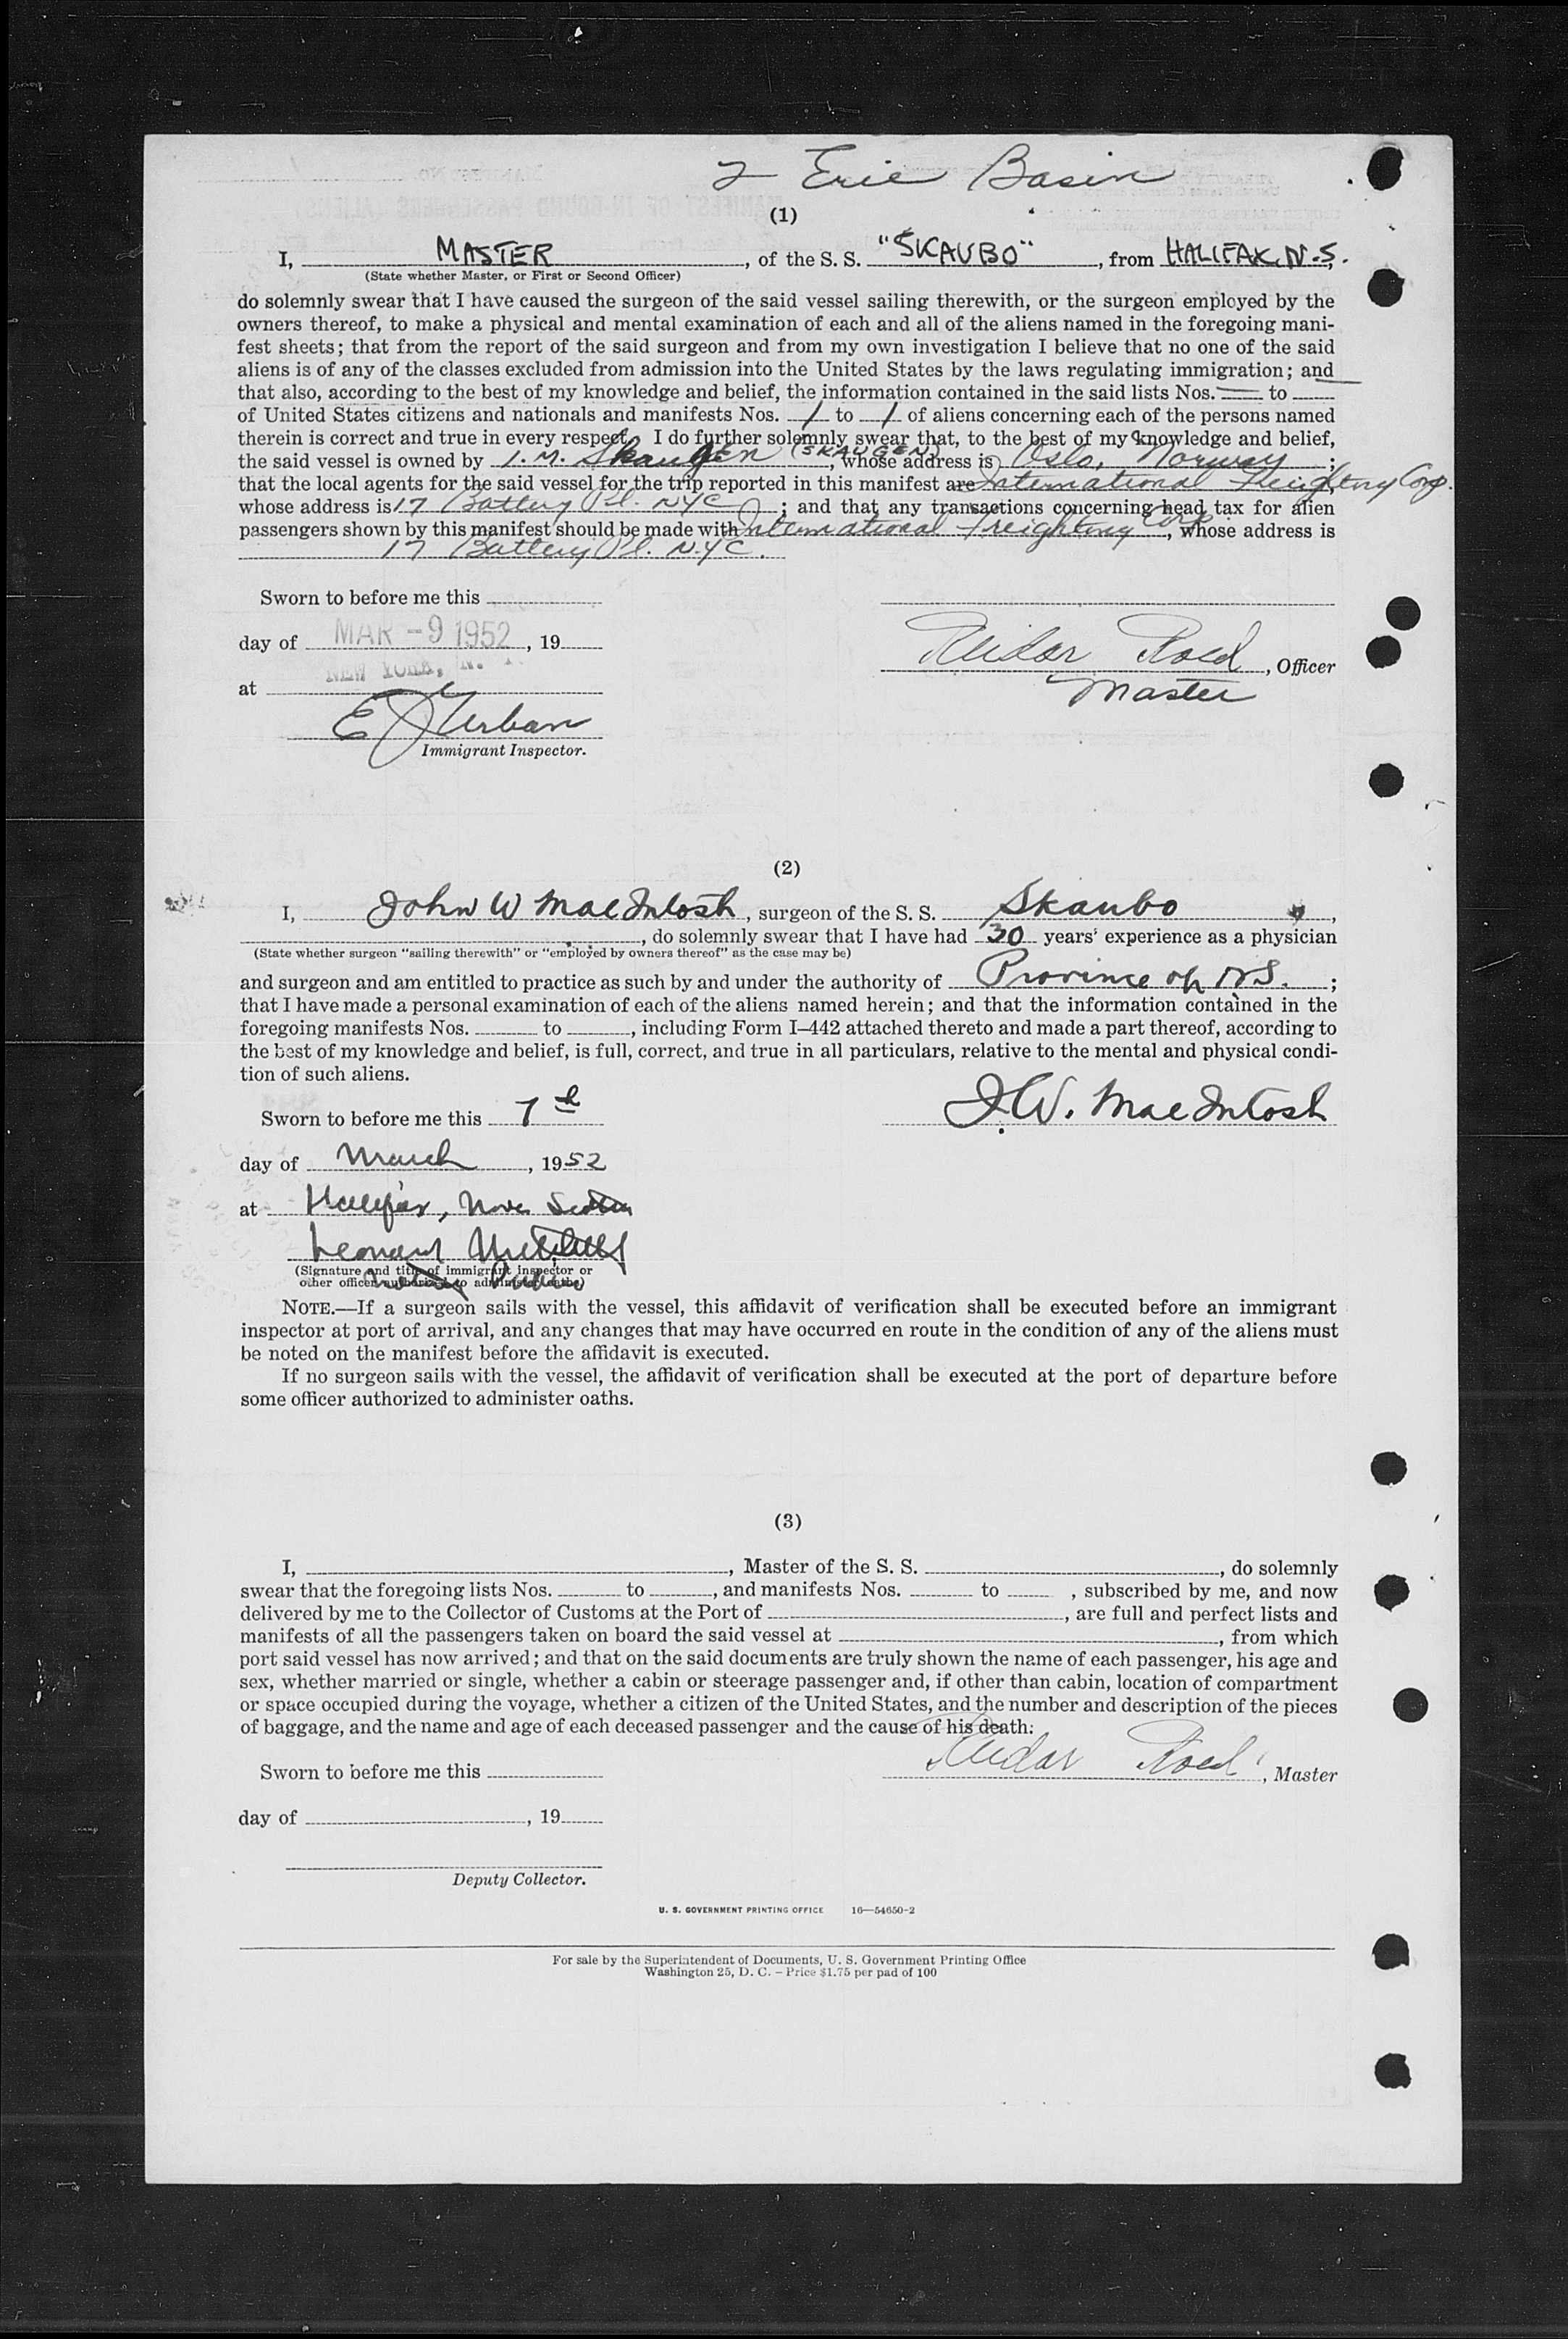 2 Erie Basin
(1)
I, MASTER, of the S. S. "SKAUBO", from HALIFAX, N.S.
(State whether Master, or First or Second Officer)
do solemnly swear that I have caused the surgeon of the said vessel sailing therewith, or the surgeon employed by the
owners thereof, to make a physical and mental examination of each and all of the aliens named in the foregoing mani-
fest sheets; that from the report of the said surgeon and from my own investigation I believe that no one of the said
aliens is of any of the classes excluded from admission into the United States by the laws regulating immigration; and
that also, according to the best of my knowledge and belief, the information contained in the said lists Nos. — to
of United States citizens and nationals and manifests Nos. 1 to 1 of aliens concerning each of the persons named
therein is correct and true in every respect. I do further solemnly swear that, to the best of my knowledge and belief,
the said vessel is owned by I. M. Skaugen (SKAUGEN), whose address is Oslo, Norway;
that the local agents for the said vessel for the trip reported in this manifest are International Freighting Corp.
whose address is 17 Battery Pl. NYC; and that any transactions concerning head tax for alien
passengers shown by this manifest should be made with International Freighting Corp, whose address is
17 Battery Pl. N.Y.C.
Sworn to before me this
day of MAR -9 1952, 19
NEW YORK, N. Y.
at
Reidar Roed, Officer
Master
E J Urban
Immigrant Inspector.
(2)
I, John W MacIntosh, surgeon of the S. S. Skaubo,
, do solemnly swear that I have had 30 years' experience as a physician
(State whether surgeon "sailing therewith" or "employed by owners thereof" as the case may be)
and surgeon and am entitled to practice as such by and under the authority of Province of N.S.;
that I have made a personal examination of each of the aliens named herein; and that the information contained in the
foregoing manifests Nos. to , including Form I–442 attached thereto and made a part thereof, according to
the best of my knowledge and belief, is full, correct, and true in all particulars, relative to the mental and physical condi-
tion of such aliens.
Sworn to before me this 7th
J.W. MacIntosh
day of March, 1952
at Halifax, Nova Scotia
Leonard Mitchell
(Signature and title of immigrant inspector or
other officer authorized to administer oaths)
Notary Public
NOTE.—If a surgeon sails with the vessel, this affidavit of verification shall be executed before an immigrant
inspector at port of arrival, and any changes that may have occurred en route in the condition of any of the aliens must
be noted on the manifest before the affidavit is executed.
If no surgeon sails with the vessel, the affidavit of verification shall be executed at the port of departure before
some officer authorized to administer oaths.
(3)
I, , Master of the S. S. , do solemnly
swear that the foregoing lists Nos. to , and manifests Nos. to , subscribed by me, and now
delivered by me to the Collector of Customs at the Port of , are full and perfect lists and
manifests of all the passengers taken on board the said vessel at , from which
port said vessel has now arrived; and that on the said documents are truly shown the name of each passenger, his age and
sex, whether married or single, whether a cabin or steerage passenger and, if other than cabin, location of compartment
or space occupied during the voyage, whether a citizen of the United States, and the number and description of the pieces
of baggage, and the name and age of each deceased passenger and the cause of his death.
Sworn to before me this
Reidar Roed, Master
day of , 19
Deputy Collector.
U. S. GOVERNMENT PRINTING OFFICE 16—54650-2
For sale by the Superintendent of Documents, U. S. Government Printing Office
Washington 25, D. C. - Price $1.75 per pad of 100